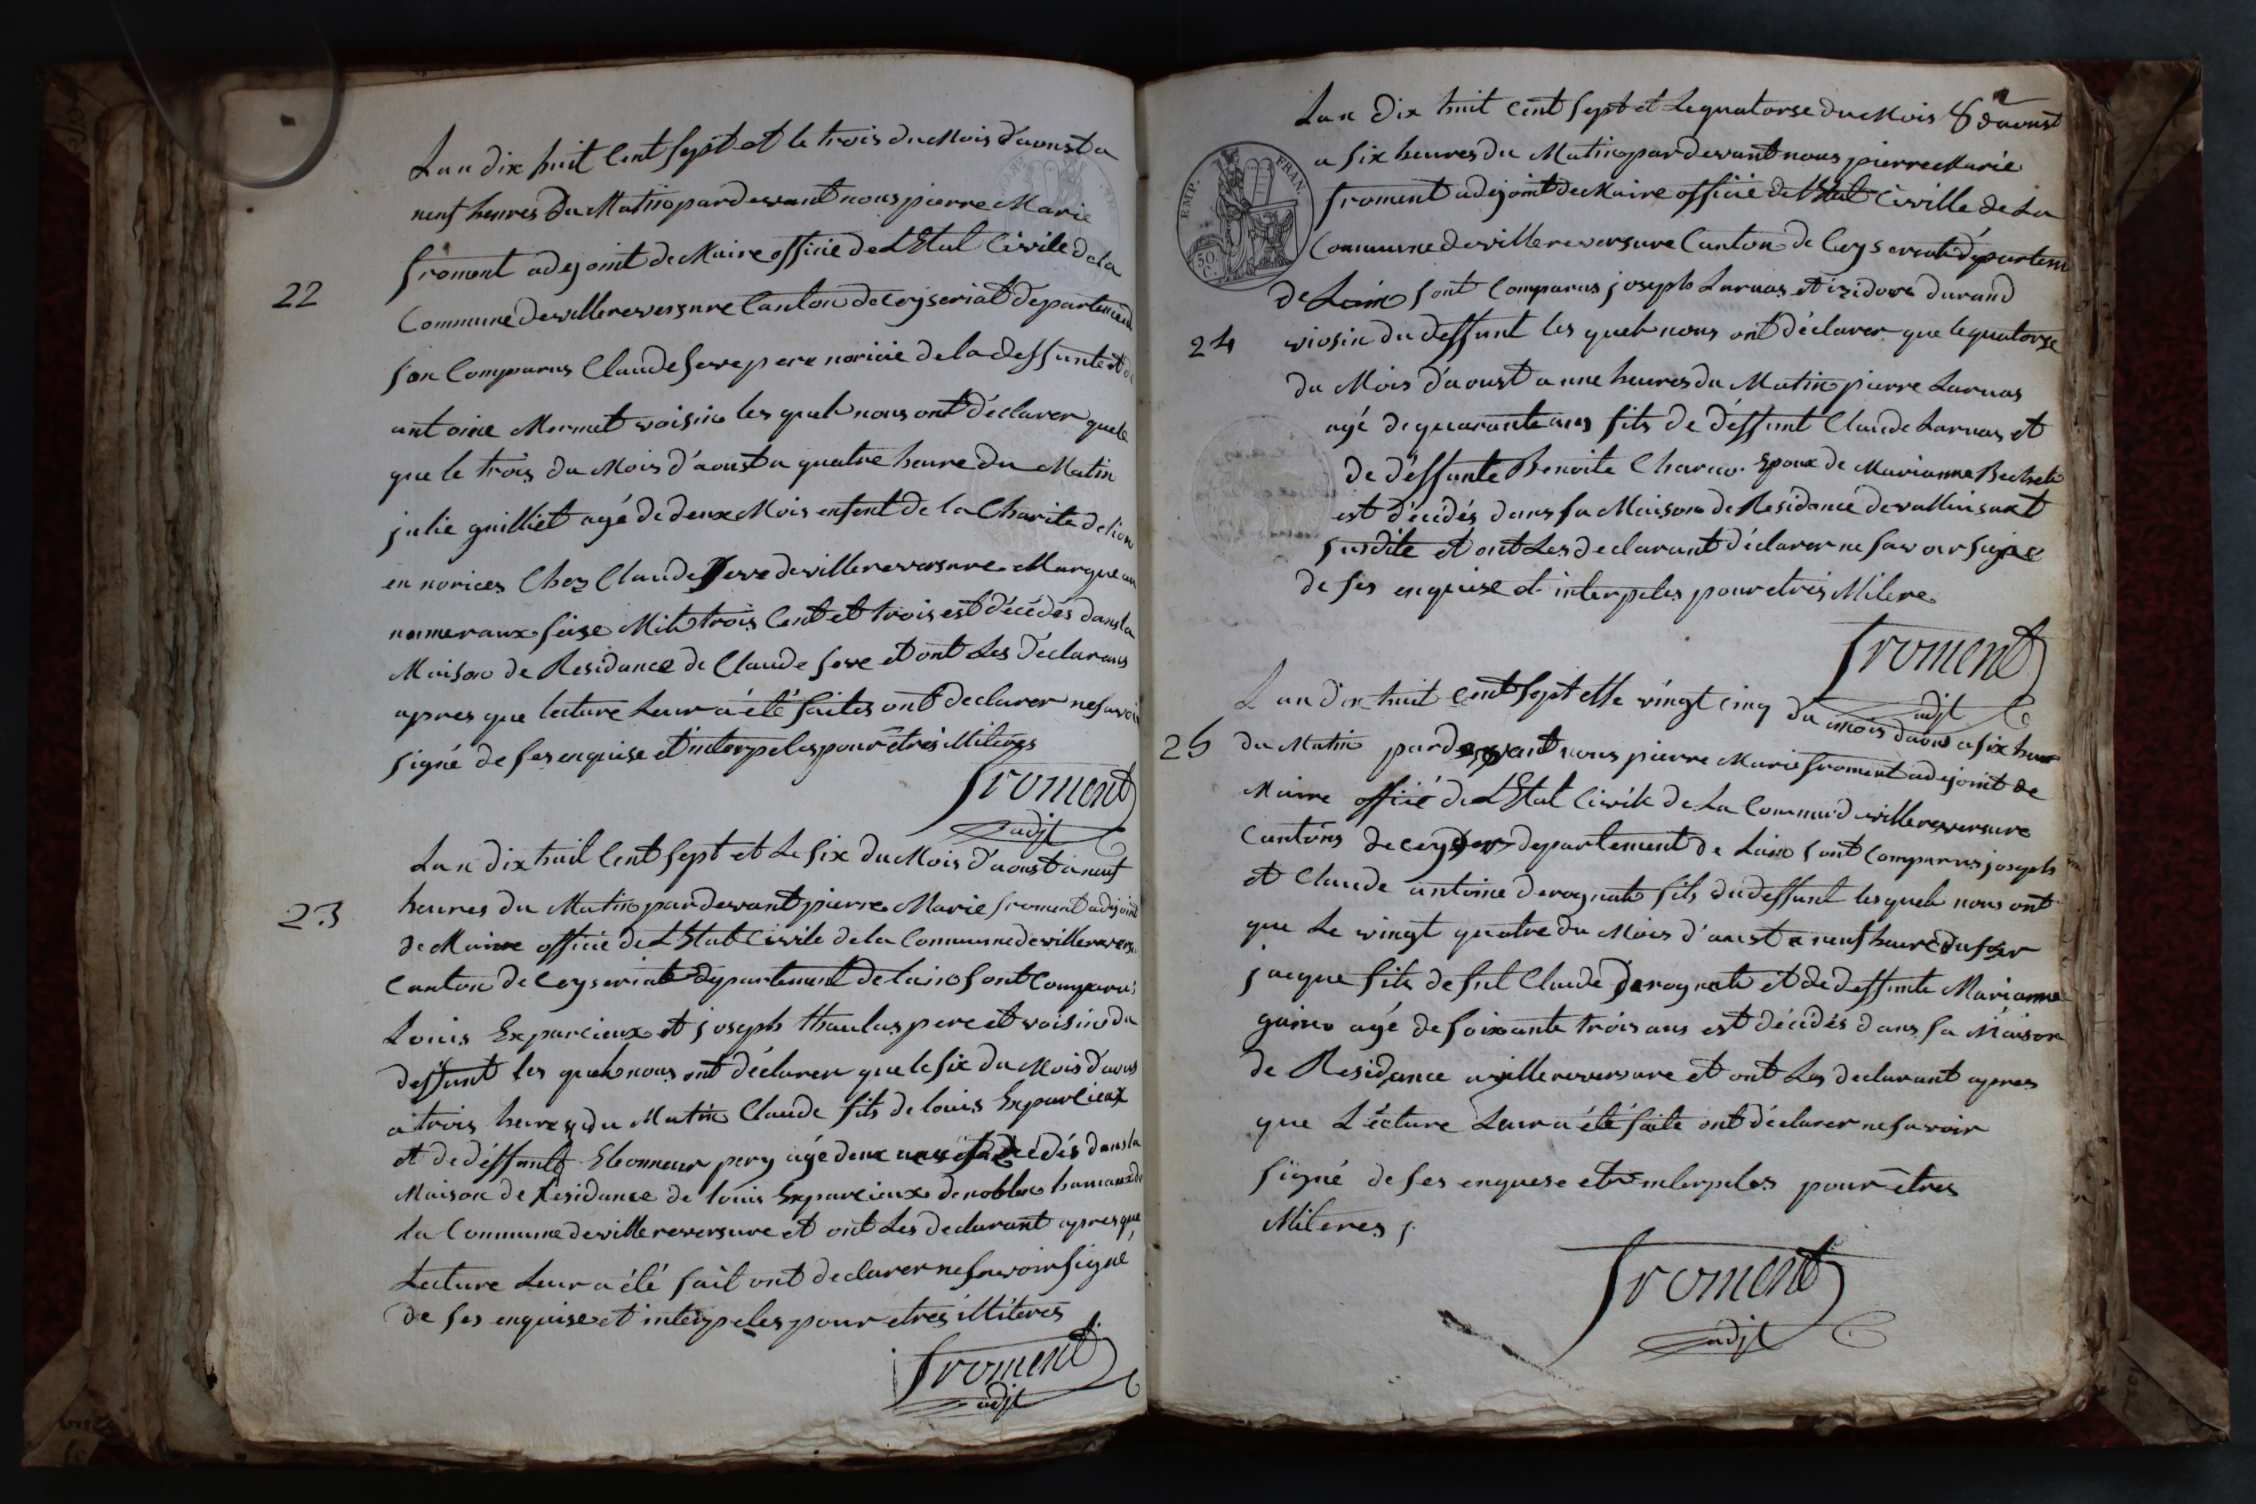 Lan dix huit Cent sept et le trois du Mois d'aoust a
neuf heures du Matin pardevant nous pierre Marie
froment adejoint de Maire officié de L'Etat Civile de la
22
Commune de villereversure Canton de Ceyseriat departement
son Comparus Claude seve pere noricié de la deffunte et de
antoine Mermet voisin les quels nous ont déclarer que le
que le trois du Mois d'aoust a quatre heure du Matin
julie guilliet agé de deux Mois enfent de la Charite de lion
en norices Chez Claude seve de villereversure Marque au
numeraux seise Mil trois Cent et trois est décédés dans la
Maison de Residance de Claude seve et ont Les Déclarans
apres que lecture Leur a été faites ont declarer ne savoir
signé de ses enquise et interpeles pour êtres Miliéres
froment
adjt
Lan dix huit Cent sept et Le six du Mois d'aoust a neuf
heures du Matin pardevant pierre Marie froment adejoint
23
de Maire officié de L'Etat Civile de la Commune de villerevers
Canton de Ceyseriat departement de lain sont Comparus
Louis Exparcieux et joseph thaulas pere et voisin du
deffunt les quels nous ont déclarer que le six du Mois d'aous
a trois heures du Matin Claude fils de louis Exparcieux
et de déffunte Eleonneur pery agé deux ans est décédés dans la
Maison de Residance de louis Exparcieux de noblen hameaux de
la Commune de villereversure et ont Les declarant apres que
Lecture Leur a été fait ont declarer ne savoir signé
de ses enquise et interpeles pour etres illiteres
froment
adjt
Lan Dix huit Cent sept et Le quatorse du Mois d'aoust
a six heures du Matin pardevant nous pierre Marie
EMP. FRAN.
50 C.
froment adejoint de Maire officié de L'Etat Civille de La
Commune de villereversure Canton de Ceyseriat département
de Lain sont Comparus joseph Larnas et izidore durand
24
viosin du deffunt les quels nous ont déclarer que le quatorse
du Mois d'aoust a une heures du Matin pierre Larnas
agé de quarante ans fils de déffunt Claude Larnas et
de déffunte Benoite Charno Epoux de Marianne
est décédés dans sa Maison de Residance de vallin
susdite et ont Les declarant déclarer ne savoir signé
de ses enquise et interpeles pour etres Milere
froment
adjt
Lan dix huit Cent sept et le vingt cinq du mois daous a six heur
25
du Matin pardevant nous pierre Marie froment adejoint de
Maire officié de L'Etat Civile de La Commu d villereversure
Cantons de ceyser departement de Lain sont Comparus joseph
et Claude antoine derognat fils du deffunt les quels nous ont
que Le vingt quatre du Mois d'aoust a neuf heure du soir
jacque fils de fut Claude derognat et de deffunte Marianne
guino agé de soixante trois ans est décidés dans sa Maison
de Residance a villereversure et ont Les declarant apres
que Lécture Leur a été faite ont déclarer ne savoir
signé de ses enquese et interpeles pour êtres
Mileres
froment
adjt